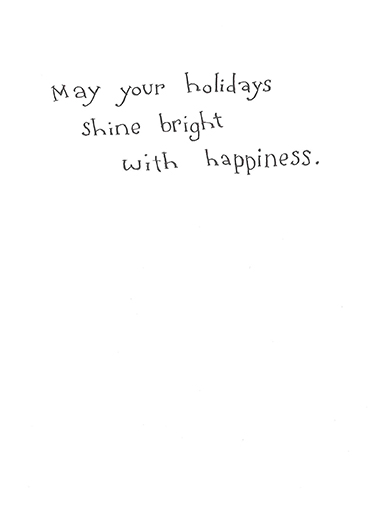 May your holidays
shine bright
with happiness.